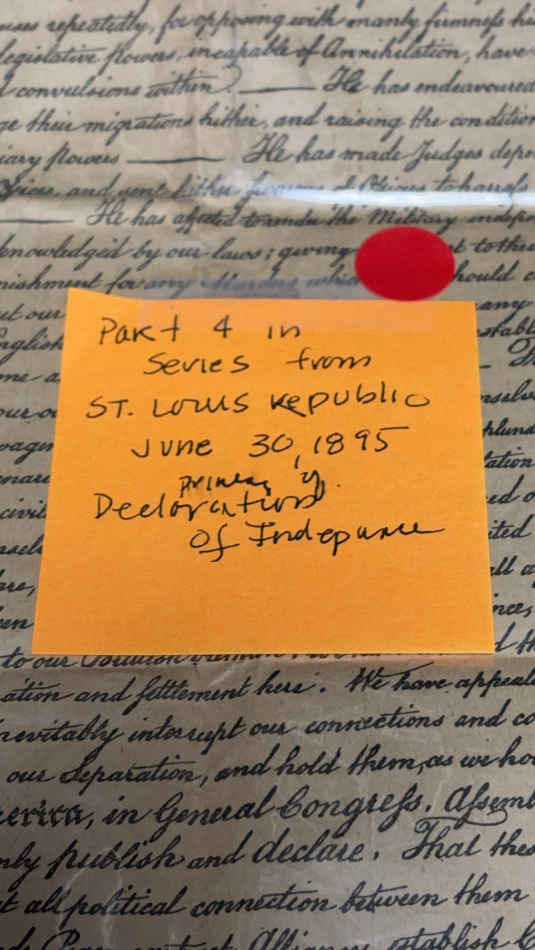 uses repeatedly, for opposing with manly firmness his
legislative powers, incapable of Annihilation, have
convulsions within. He has endeavoured
their migrations hither, and raising the condition
iary powers He has made Judges depe
and sent hither of Officers to harrass
He has affected to render the Military indep
knowledged by our laws; giving t to thei
nishment for any Murders which hould c
out our any
nglish establ
me a
Part 4 in
Series from
ST. LOUIS REPUBLIC
June 30, 1895
printing of
Declaration
Of Indepance
to our
ation and settlement here. We have appeale
nevitably interrupt our connections and co
our Separation, and hold them, as we ho
merica, in General Congress, Assemb
nly publish and declare, That thes
t all political connection between them
establish C